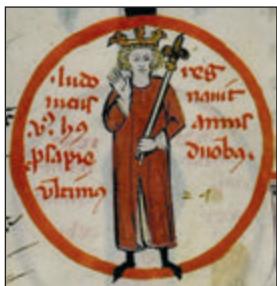 ludo
uicus
vꝰ hꝰ
ꝓsapie
vltimꝰ
reg
nauit
annis
duobꝰ.